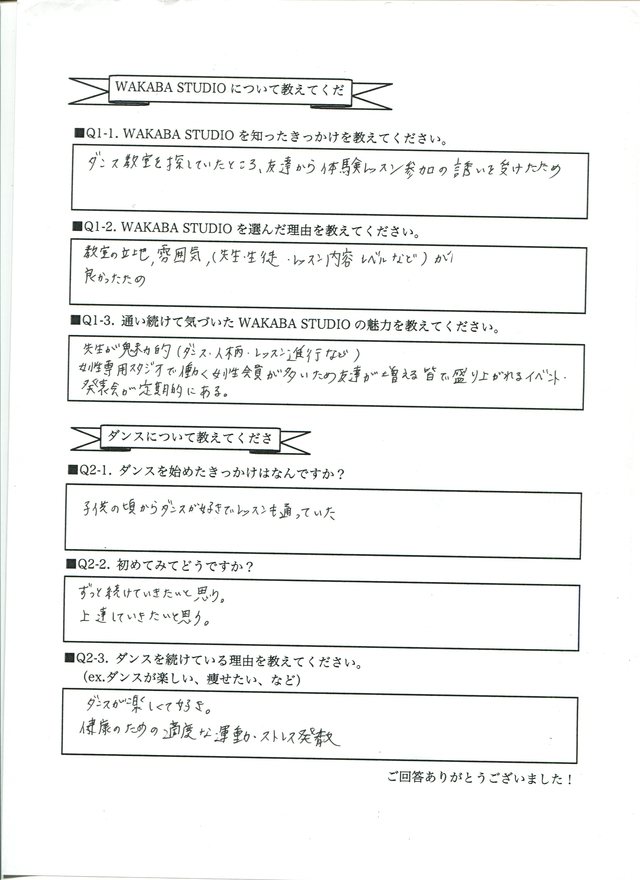 WAKABA STUDIO について教えてくだ
■Q1-1. WAKABA STUDIO を知ったきっかけを教えてください。
ダンス教室を探していたところ、友達から体験レッスン参加の誘いを受けたため
■Q1-2. WAKABA STUDIO を選んだ理由を教えてください。
教室の立地,雰囲気,(先生・生徒・レッスン内容 レベルなど)が
良かったたの
■Q1-3. 通い続けて気づいた WAKABA STUDIO の魅力を教えてください。
先生が魅力的(ダンス・人柄・レッスン進行など)
女性専用スタジオで働く女性会員が多いため友達が増える 皆で盛り上がれるイベント・
発表会が定期的にある。
ダンスについて教えてくださ
■Q2-1. ダンスを始めたきっかけはなんですか？
子供の頃からダンスが好きでレッスンも通っていた
■Q2-2. 初めてみてどうですか？
ずっと続けていきたいと思う。
上達していきたいと思う。
■Q2-3. ダンスを続けている理由を教えてください。
(ex.ダンスが楽しい、痩せたい、など)
ダンスが楽しくて好き。
健康のための適度な運動・ストレス発散
ご回答ありがとうございました！